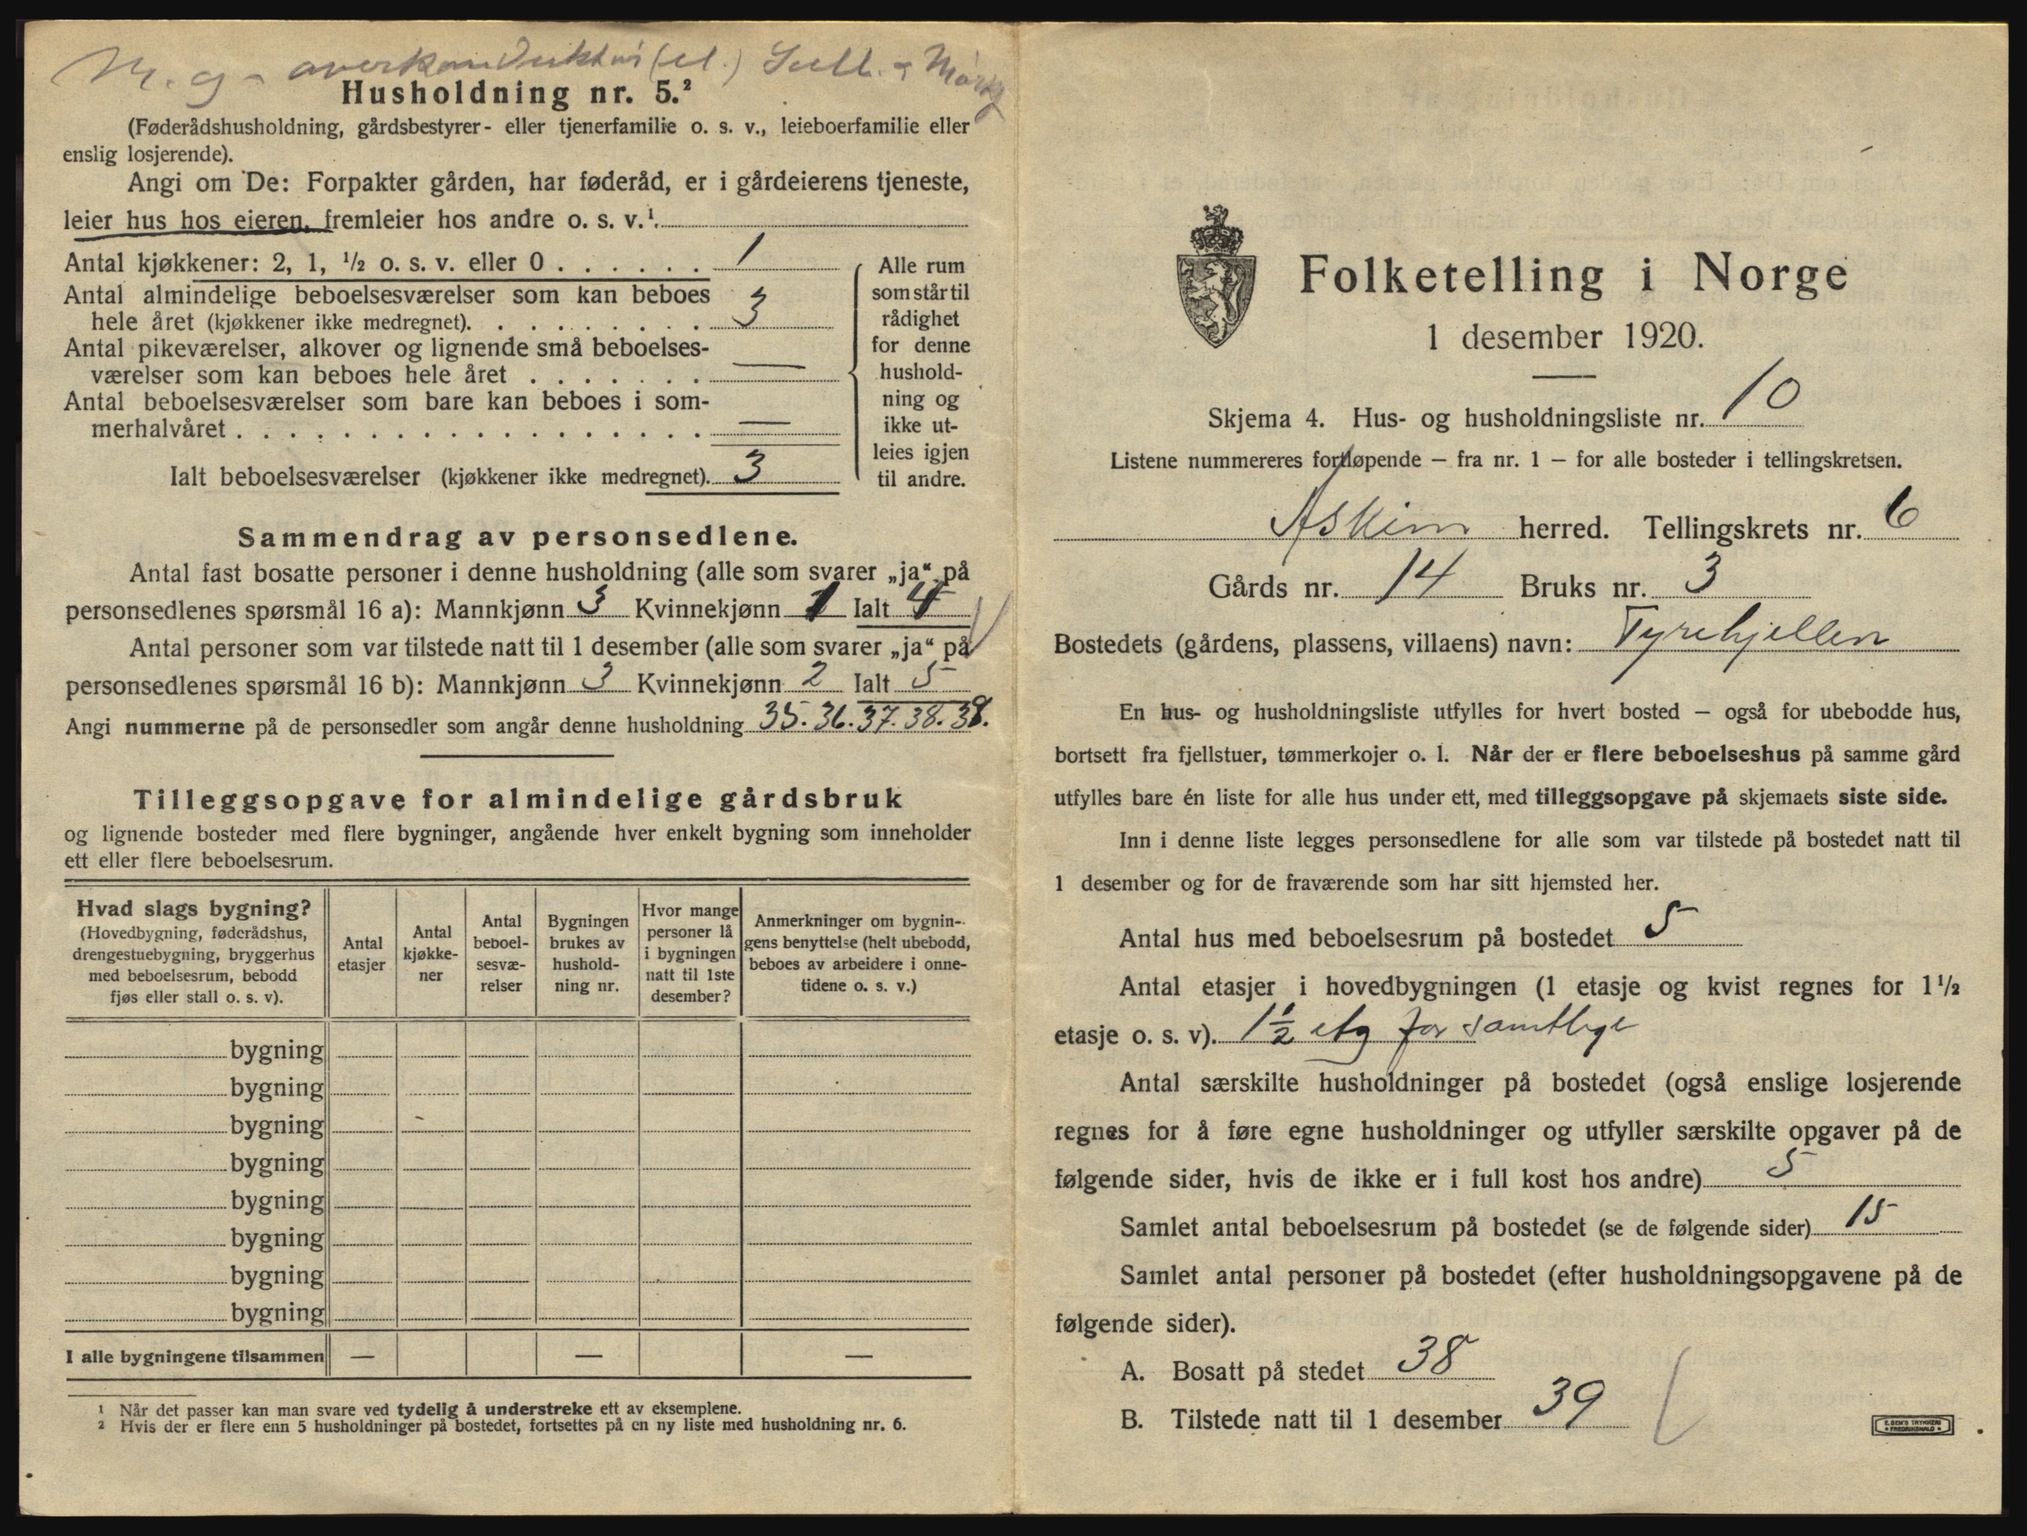 M. og
Husholdning nr. 5.²
(Føderådshusholdning, gårdsbestyrer- eller tjenerfamilie o. s. v., leieboerfamilie eller
enslig losjerende).
Angi om De: Forpakter gården, har føderåd, er i gårdeierens tjeneste,
leier hus hos eieren, fremleier hos andre o. s. v.¹
Antal kjøkkener: 2, 1, ½ o. s. v. eller 0 . . . . . . 1
Antal almindelige beboelsesværelser som kan beboes
hele året (kjøkkener ikke medregnet). . . . . . . . . 3
Antal pikeværelser, alkover og lignende små beboelses-
værelser som kan beboes hele året . . . . . . . —
Antal beboelsesværelser som bare kan beboes i som-
merhalvåret . . . . . . . . . . . . . . . . . . —
Ialt beboelsesværelser (kjøkkener ikke medregnet). 3
Alle rum
som står til
rådighet
for denne
hushold-
ning og
ikke ut-
leies igjen
til andre.
Sammendrag av personsedlene.
Antal fast bosatte personer i denne husholdning (alle som svarer „ja“ på
personsedlenes spørsmål 16 a): Mannkjønn 3 Kvinnekjønn 1 Ialt 4
Antal personer som var tilstede natt til 1 desember (alle som svarer „ja“ på
personsedlenes spørsmål 16 b): Mannkjønn 3 Kvinnekjønn 2 Ialt 5
Angi nummerne på de personsedler som angår denne husholdning 35. 36. 37. 38. 39.
Tilleggsopgave for almindelige gårdsbruk
og lignende bosteder med flere bygninger, angående hver enkelt bygning som inneholder
ett eller flere beboelsesrum.
Hvad slags bygning?
(Hovedbygning, føderådshus,
drengestuebygning, bryggerhus
med beboelsesrum, bebodd
fjøs eller stall o. s. v).
Antal
etasjer
Antal
kjøkke-
ner
Antal
beboel-
sesvæ-
relser
Bygningen
brukes av
hushold-
ning nr.
Hvor mange
personer lå
i bygningen
natt til 1ste
desember?
Anmerkninger om bygnin-
gens benyttelse (helt ubebodd,
beboes av arbeidere i onne-
tidene o. s. v.)
bygning
bygning
bygning
bygning
bygning
bygning
bygning
bygning
I alle bygningene tilsammen — — —
¹ Når det passer kan man svare ved tydelig å understreke ett av eksemplene.
² Hvis der er flere enn 5 husholdninger på bostedet, fortsettes på en ny liste med husholdning nr. 6.
Folketelling i Norge
1 desember 1920.
Skjema 4. Hus- og husholdningsliste nr. 10
Listene nummereres fortløpende – fra nr. 1 – for alle bosteder i tellingskretsen.
Askim herred. Tellingskrets nr. 6
Gårds nr. 14 Bruks nr. 3
Bostedets (gårdens, plassens, villaens) navn: Tyrehjellen
En hus- og husholdningsliste utfylles for hvert bosted – også for ubebodde hus,
bortsett fra fjellstuer, tømmerkojer o. l. Når der er flere beboelseshus på samme gård
utfylles bare én liste for alle hus under ett, med tilleggsopgave på skjemaets siste side.
Inn i denne liste legges personsedlene for alle som var tilstede på bostedet natt til
1 desember og for de fraværende som har sitt hjemsted her.
Antal hus med beboelsesrum på bostedet 5
Antal etasjer i hovedbygningen (1 etasje og kvist regnes for 1½
etasje o. s. v). 1½ etg for samtlige
Antal særskilte husholdninger på bostedet (også enslige losjerende
regnes for å føre egne husholdninger og utfyller særskilte opgaver på de
følgende sider, hvis de ikke er i full kost hos andre) 5
Samlet antal beboelsesrum på bostedet (se de følgende sider) 15
Samlet antal personer på bostedet (efter husholdningsopgavene på de
følgende sider).
A. Bosatt på stedet 38
B. Tilstede natt til 1 desember 39